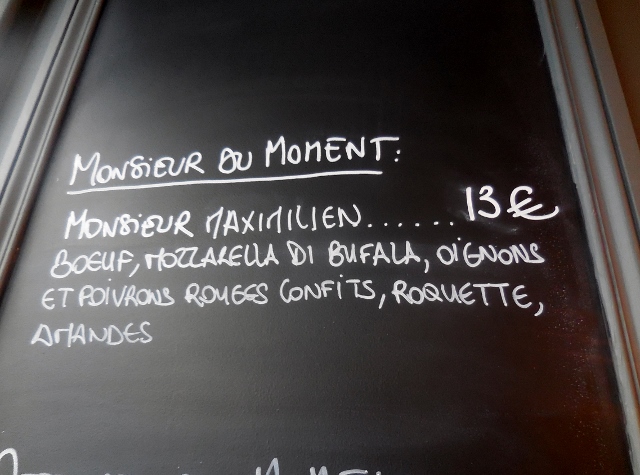 MONSIEUR DU MOMENT:
MONSIEUR MAXIMILIEN...... 13 €
BOEUF, MOZZARELLA DI BUFALA, OIGNONS
ET POIVRONS ROUGES CONFITS, ROQUETTE,
AMANDES